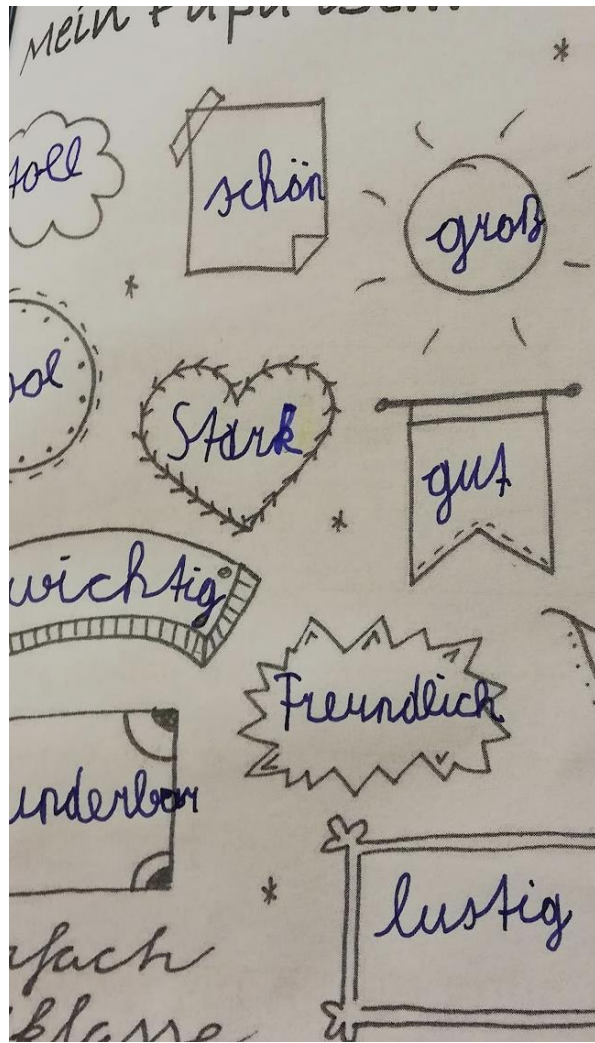 Mein Papa ist...
toll
schön
groß
ool
Stark
gut
wichtig
Freundlich
underbar
lustig
nfach
klasse